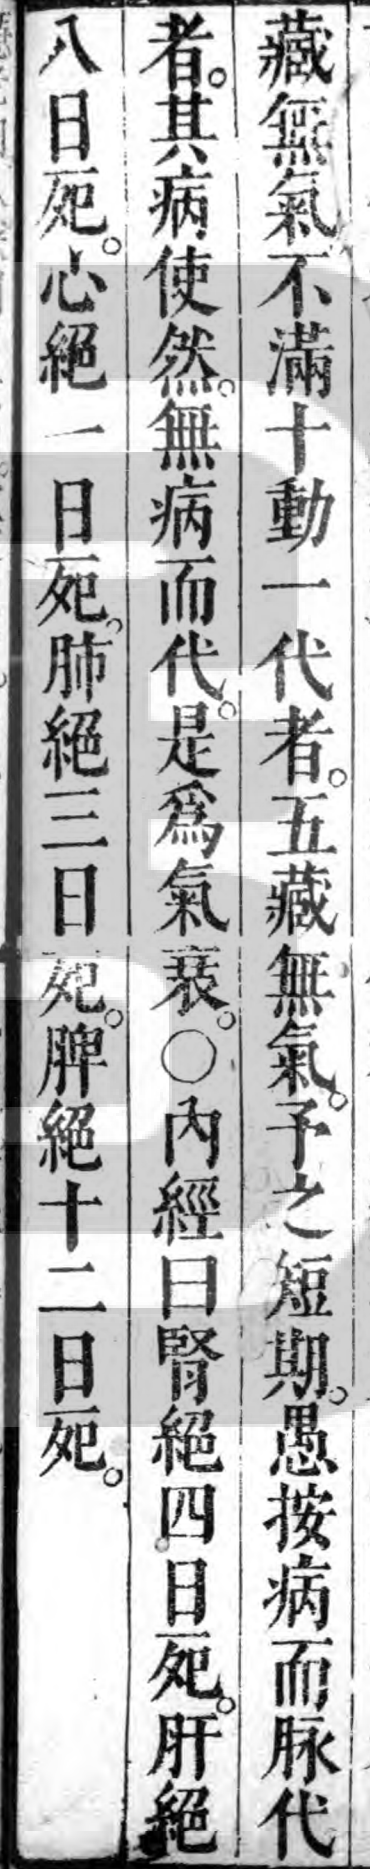 藏無氣不滿十動一代者。五藏無氣。予之短期。愚按病而脉代
者。其病使然。無病而代。是爲氣衰。○內經曰腎絕四日死。肝絕
八日死。心絕一日死。肺絕三日死。脾絕十二日死。